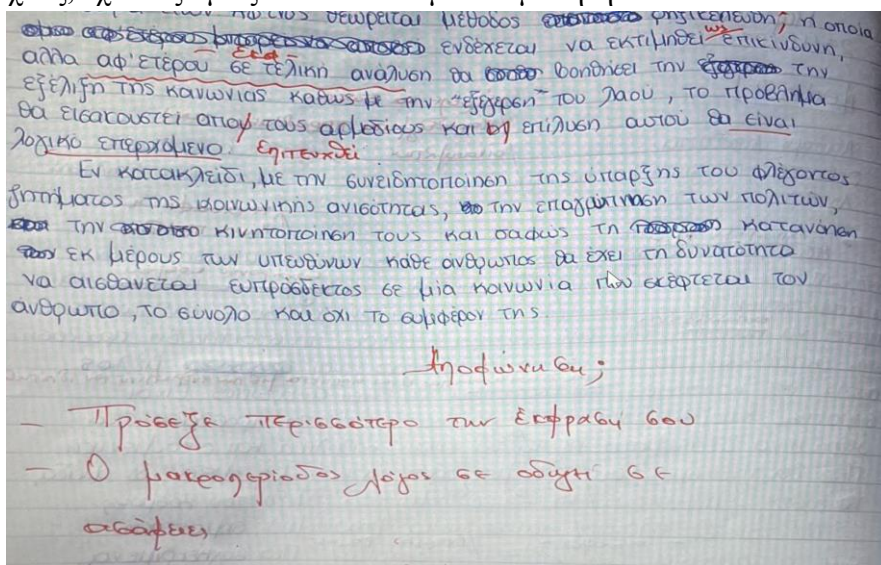 θεωρείται μέθοδος ; η οποία
ενδέχεται να εκτιμηθεί ως επικίνδυνη,
αλλα αφ'ετέρου σε τελική ανάλυση θα βοηθήσει την την
εξέλιξη της κοινωνίας καθώς με την "εξέγερση" του λαού, το πρόβλημα
θα εισακουστεί από τους αρμόδιους και η επίλυση αυτού θα είναι
λογικό επερχόμενο. επιτευχθεί
Εν κατακλείδι, με την συνειδητοποίηση της ύπαρξης του φλέγοντος
ζητήματος της κοινωνικής ανισότητας, την επαγρύπνηση των πολιτών,
την κινητοποίηση τους και σαφώς τη κατανόηση
εκ μέρους των υπευθύνων κάθε άνθρωπος θα έχει τη δυνατότητα
να αισθάνεται ευπρόσδεκτος σε μία κοινωνία που σκέφτεται τον
άνθρωπο, το σύνολο και όχι το συμφέρον της.
Αποφώνηση;
- Πρόσεξε περισσότερο την έκφραση σου
- Ο μακροπερίοδος λόγος σε οδηγεί σε
ασάφειες